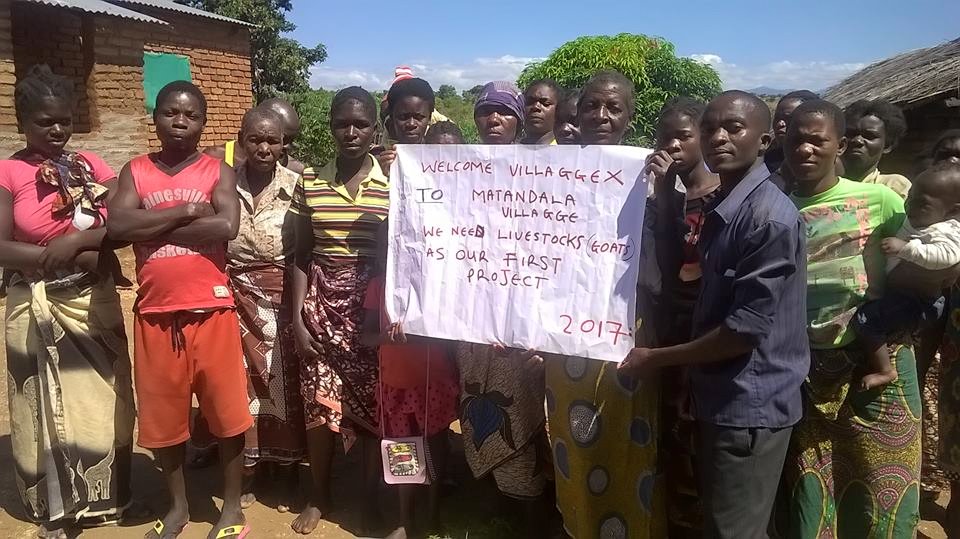 WELCOME VILLAGGEX
TO MATANDALA
VILLAGGE
WE NEED LIVESTOCKS (GOATS)
AS OUR FIRST
PROJECT
2017